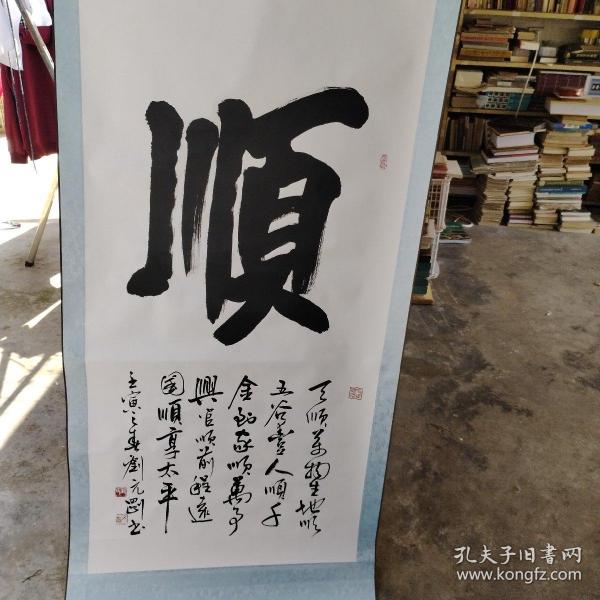 順
天順萬物生地順
五谷豊人順千
金到家順萬事
興官順前程遠
國順享太平
壬寅之春劉元剛书
孔夫子旧書网
www.kongfz.com